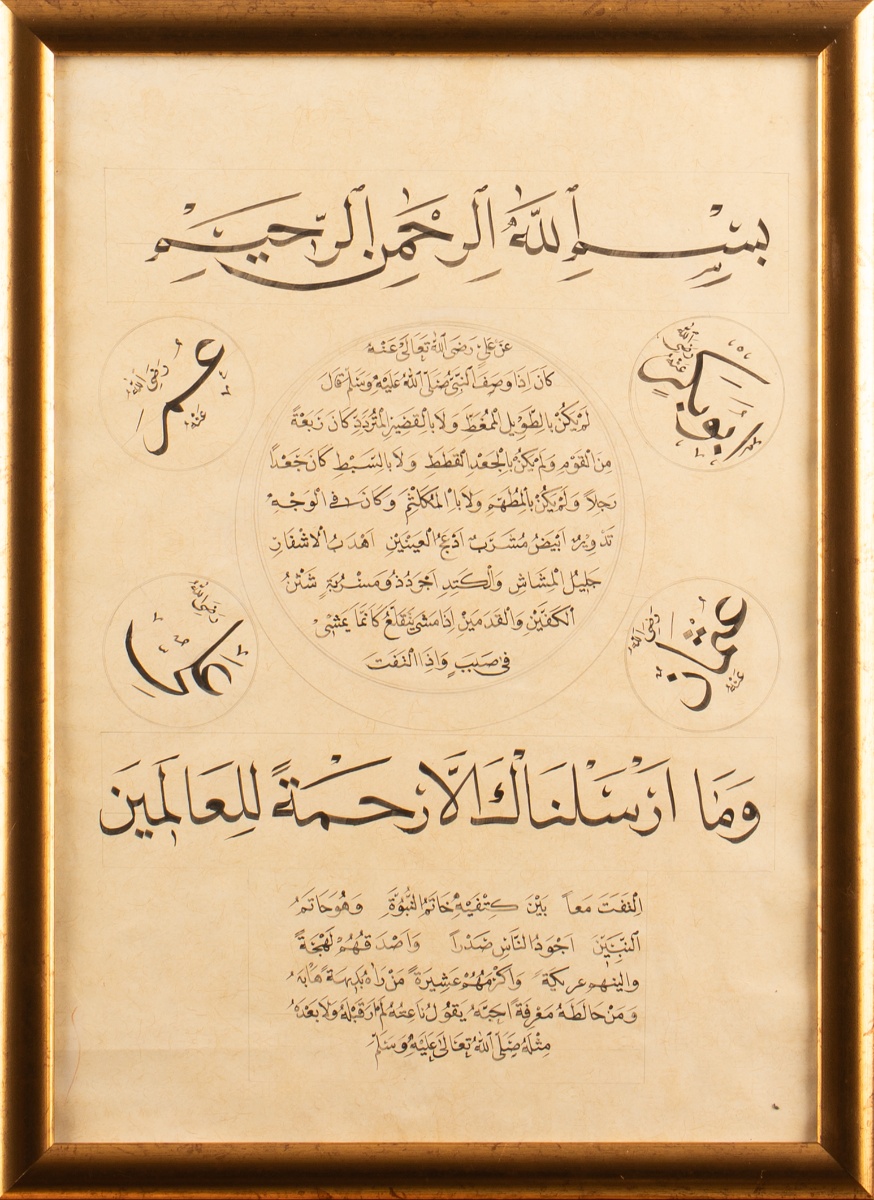 بسم الله الرحمن الرحيم
ابوبكر رضى الله عنه
عمر رضى الله عنه
عن على رضى الله تعالى عنه
كان اذا وصف النبى صلى الله عليه وسلم قال
لم يكن بالطويل الممغط ولا بالقصير المتردد كان ربعة
من القوم ولم يكن بالجعد القطط ولا بالسبط كان جعداً
رجلاً ولم يكن بالمطهم ولا بالمكلثم وكان فى الوجه
تدوير ابيض مشرب ادعج العينين اهدب الاشفار
جليل المشاش والكتد اجرد ذو مسربة شثن
الكفين والقدمين اذا مشى يتقلع كانما يمشى
فى صبب واذا التفت
عثمان رضى الله عنه
على رضى الله
وَمَا اَرْسَلْنَاكَ اِلَّا رَحْمَةً لِلْعَالَمِينَ
التفت معاً بين كتفيه خاتم النبوة وهو خاتم
النبيين اجود الناس صدراً واصدقهم لهجة
والينهم عريكة واكرمهم عشيرة من راه بديهة هابه
ومن خالطه معرفة احبه يقول ناعته لم ار قبله ولا بعده
مثله صلى الله تعالى عليه وسلم